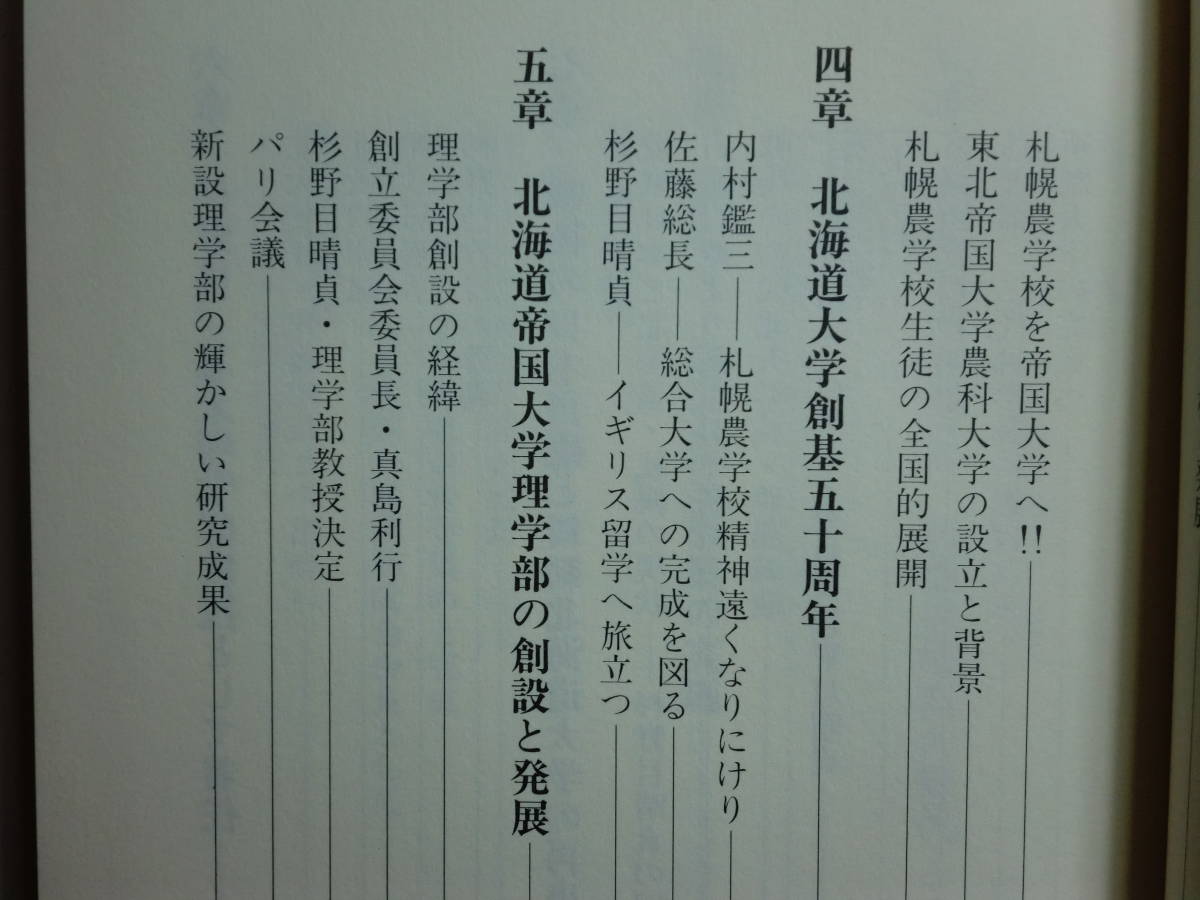 札幌農学校を帝国大学へ!!
東北帝国大学農科大学の設立と背景
札幌農学校生徒の全国的展開
四章 北海道大学創基五十周年
内村鑑三――札幌農学校精神遠くなりにけり
佐藤総長――総合大学への完成を図る
杉野目晴貞――イギリス留学へ旅立つ
五章 北海道帝国大学理学部の創設と発展
理学部創設の経緯
創立委員会委員長・真島利行
杉野目晴貞・理学部教授決定
パリ会議
新設理学部の輝かしい研究成果